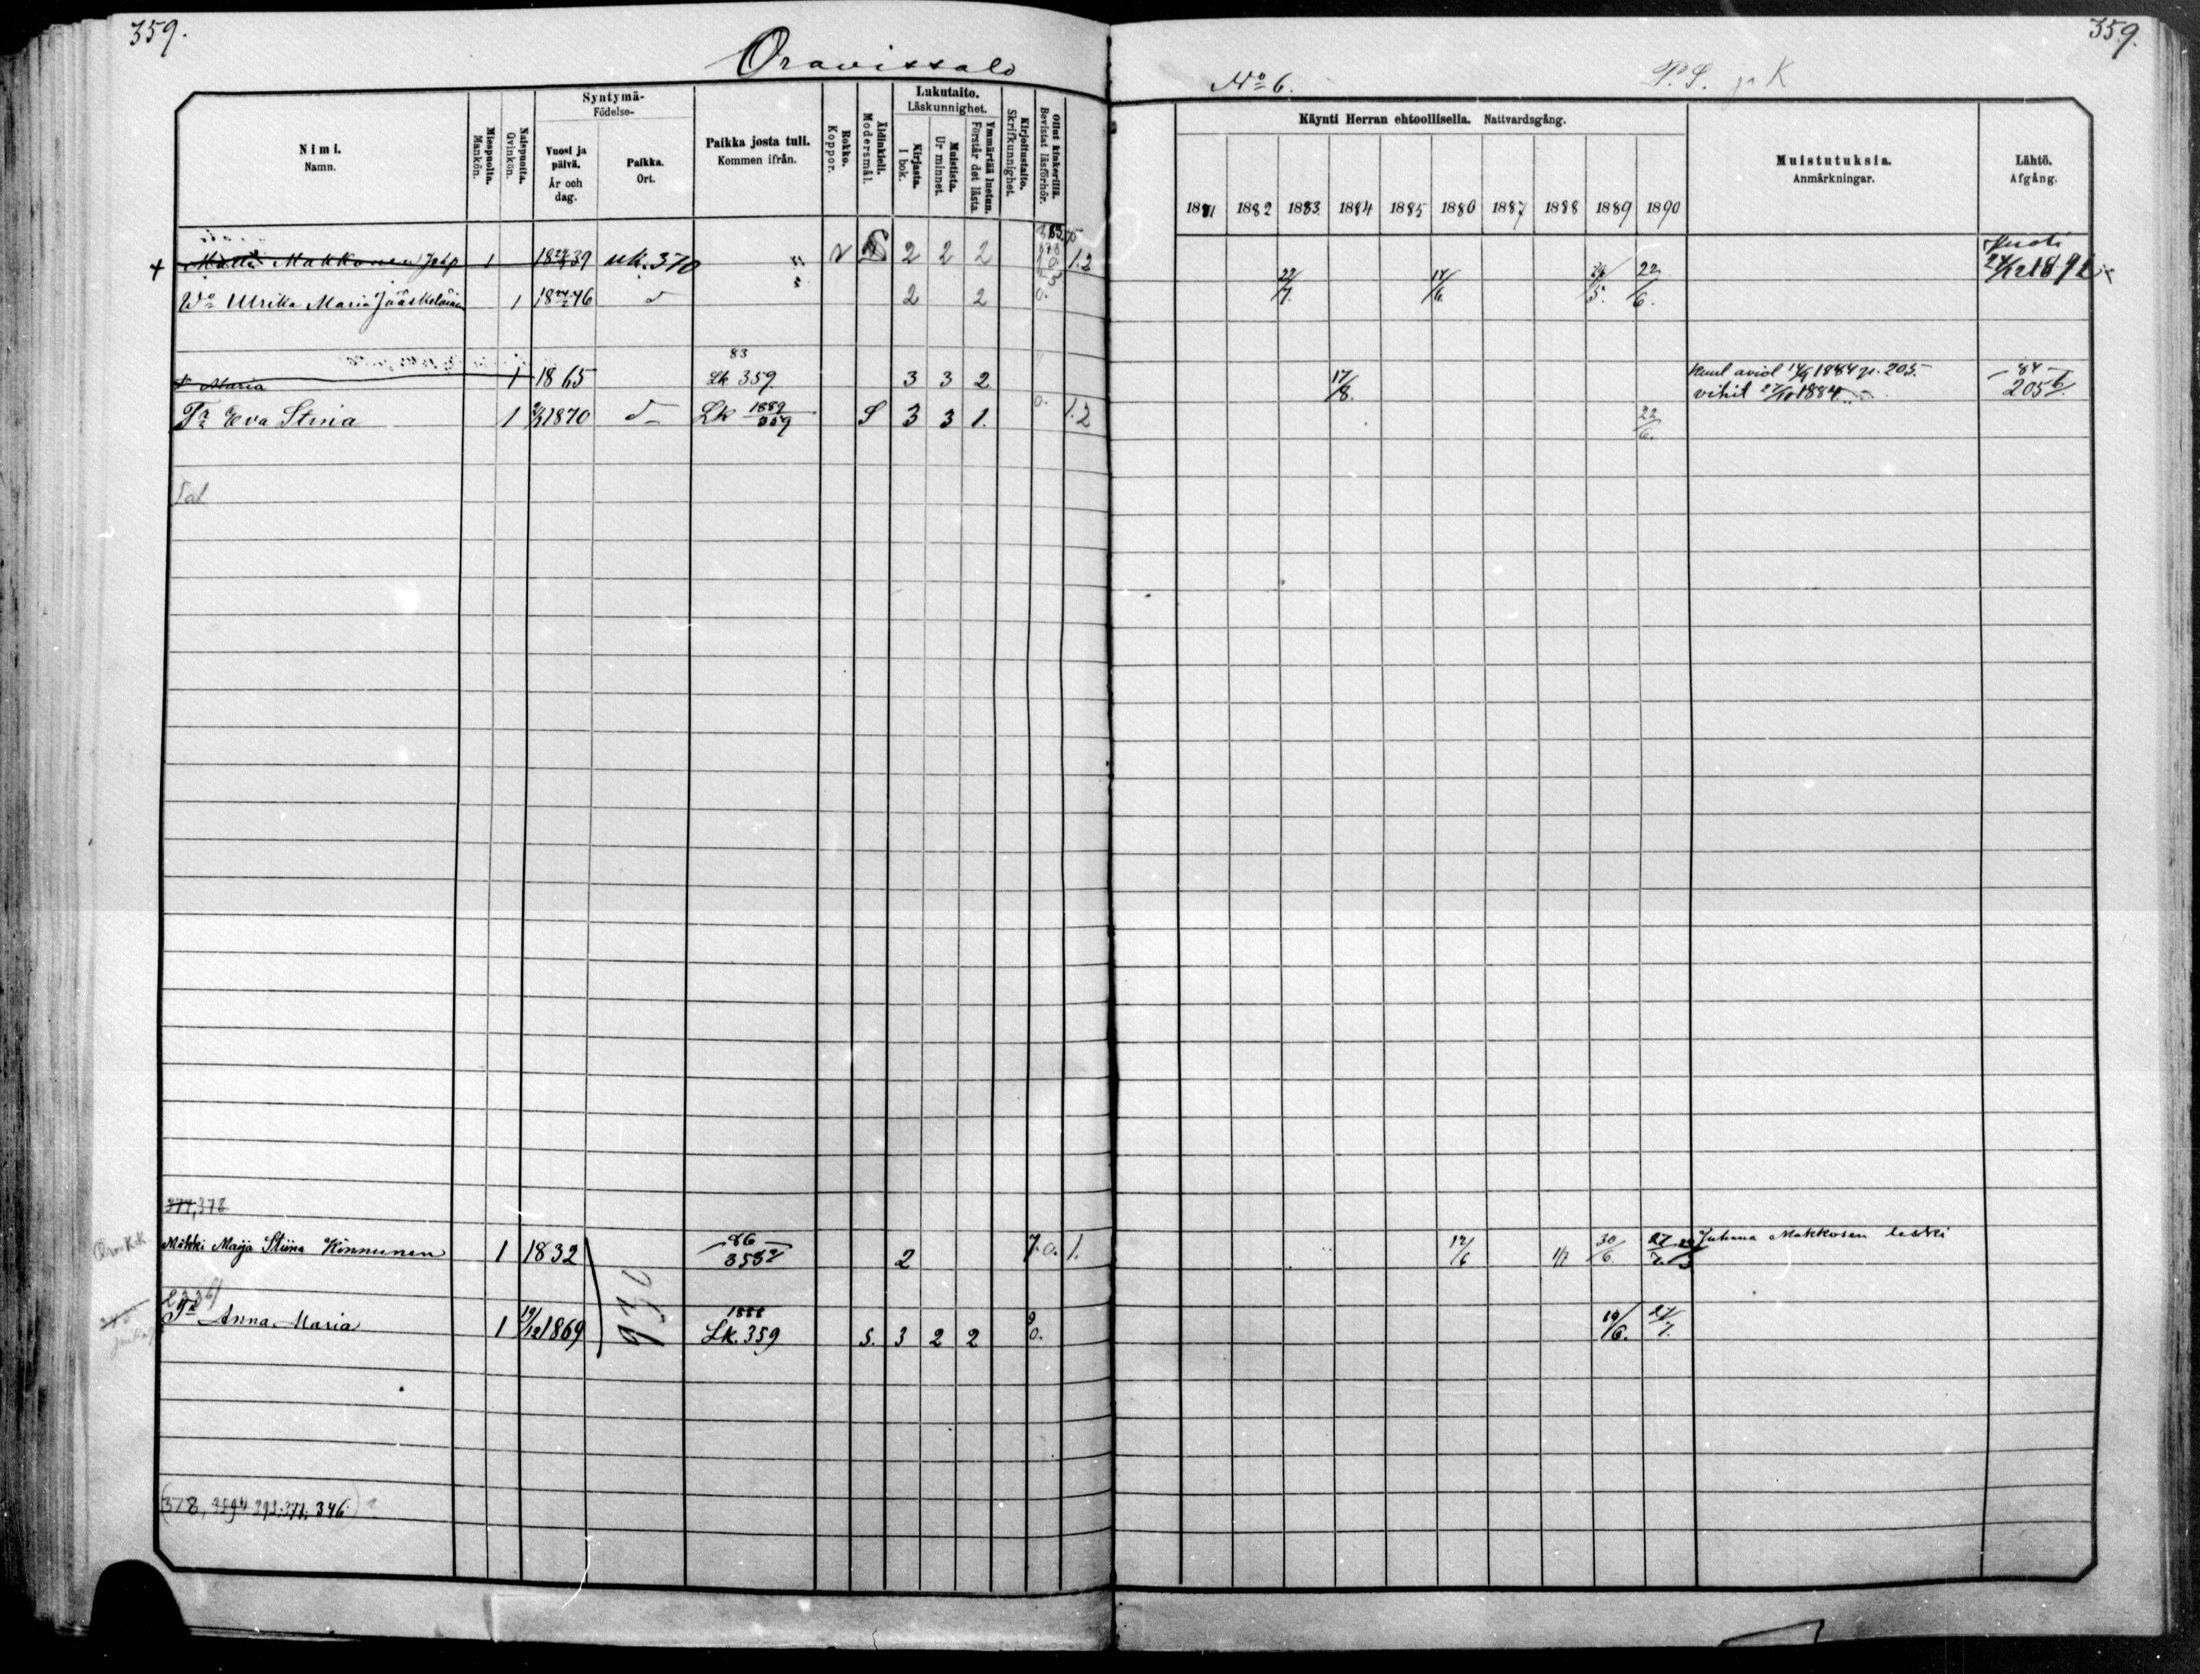 359.
359.
Oravissalo
No 6.
P.S. ja K
Nimi.
Namn.
Miespuolta.
Mankön.
Naispuolta.
Qvinkön.
Syntymä-
Födelse-
Vuosi ja päivä.
År och dag.
Paikka.
Ort.
Paikka josta tuli.
Kommen ifrån.
Rokko.
Koppor.
Äidinkieli.
Modersmål.
Lukutaito.
Läskunnighet.
Kirjasta.
I bok.
Muistista.
Ur minnet.
Ymmärtää luetun.
Förstår det lästa.
Kirjoitustaito.
Skrifkunnighet.
Ollut kinkerillä.
Bevistat läsförhör.
Käynti Herran ehtoollisella. Nattvardsgång.
1881 1882 1883 1884 1885 1886 1887 1888 1889 1890
Muistutuksia.
Anmärkningar.
Lähtö.
Afgång.
+ Matti Makkonen 1 39 uk. 370 " 2 2 2 1.2 kuoli 24/12 1891
Wo Ulrika Maria Jääskeläinen 1 46 " 2 2 0. 22/7 17/6 22/6.
83
Maria 1 1865 Lk 359. 3 3 2 17/8. kuul aviol 14/9 1884 p. 205. 84
vihit 27/10 1884 205
Tr Eva Stina 1 1870 Lk 1889/359 S 3 3 1. 0. 1.2 22/6.
377, 378
Mökki Maija Stiina Kinnunen 1 1832 86 2 7.0. 1. 17/6 1/7 30/6 27/7 Juhana Makkosen leski
Tr Anna Maria 1 19/12 1869 1888 Lk. 359 s. 3 2 2 0. 19/6. 27/7.
(378, 393. 377. 346.)